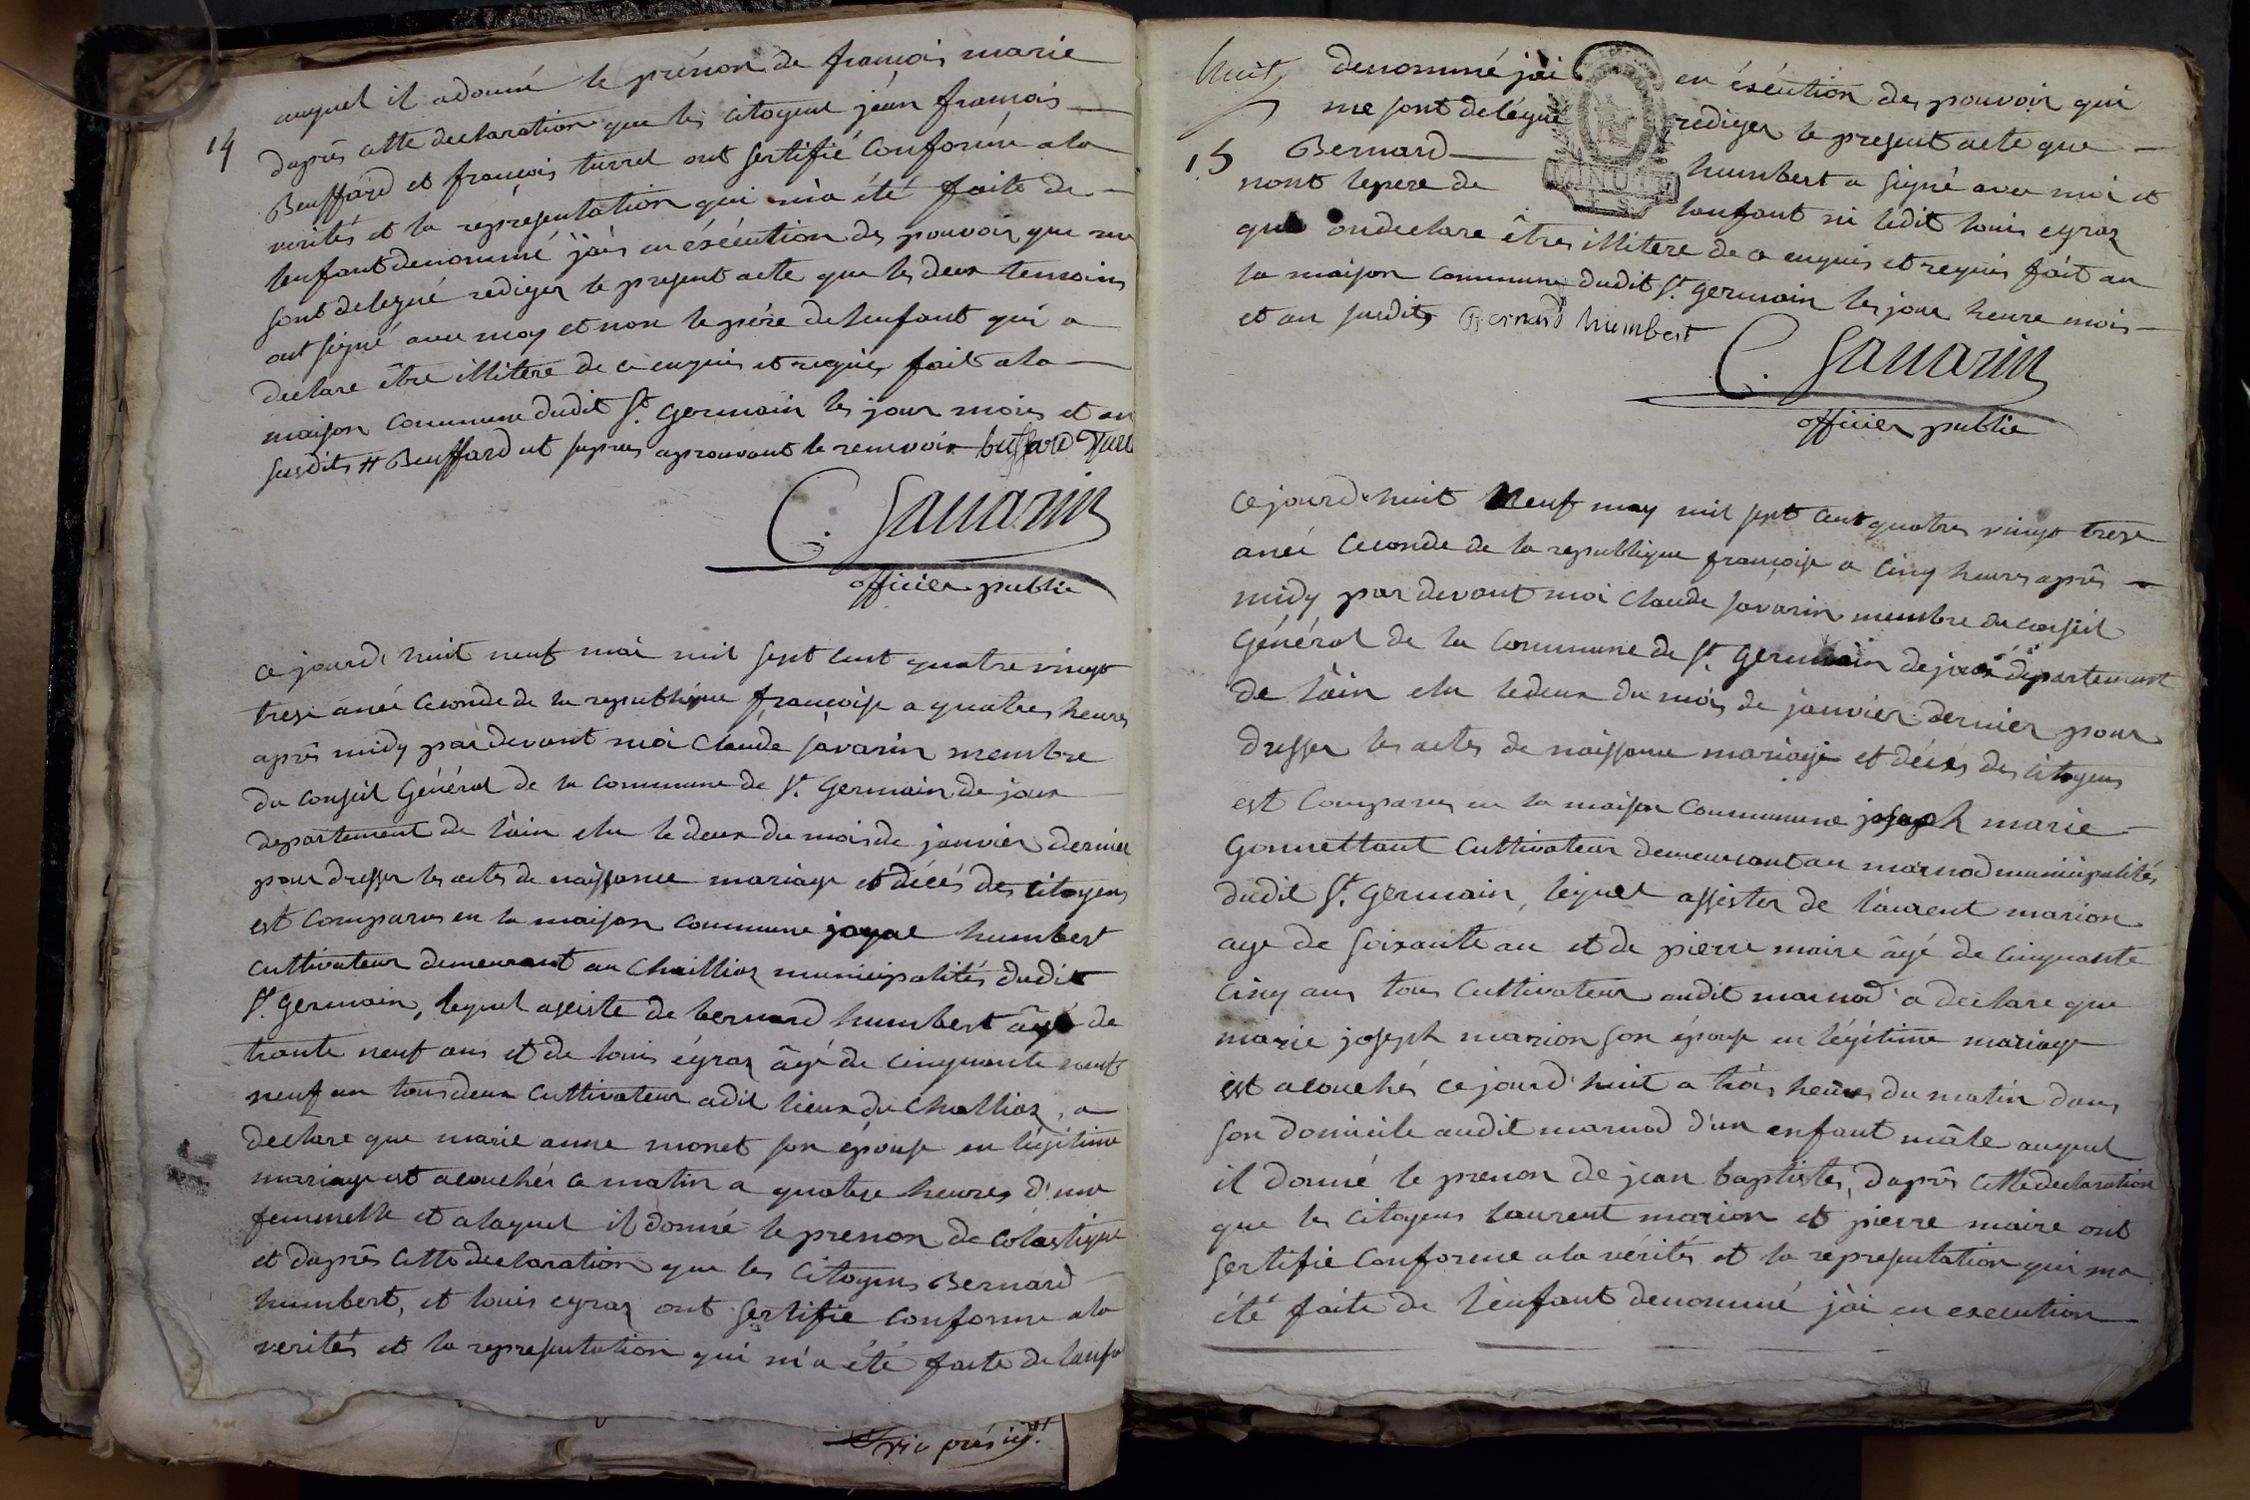 14
auquel il a donné le prénon de françois marie
daprês cette declaration que les citoyens jéan françois
Beuffard et françois turrel ont sertifié conforme a la
vérités et la représentation qui m'a été faite de
lenfant denommé j'ais en éxécution des pouvoir que me
sont delegué rediger le present acte que les deux temoins
ont signé avec moy et non le pére de lenfant qui a
declare être illitere de ce enquis et requis, fait a la
maison commune dudit St. germain les jour mois et an
susdits # Beuffard et aprouvant le renvoir buffard
C. Savarin
officier public
ce jourd'huit neuf mai mil sept cent quatre vingt
treze anéé ceconde de la republique françoise a quatres heures
aprês midy pardevant moi Claude savarin membre
du conseil Général de la commune de St. germain de joux
departement de l'ain elu le deux du mois de janvier dernier
pour dresser les actes de naissance mariage et décés des citoyens
est comparus en la maison commune humbert
cultivateur demeurant au Chaillioz municipalités dudit
St. germain, lequel asciste de bernard humbert âgé de
trante neuf ans et de louis égraz âgé de cinquante neuf
neuf an tous deux cultivateur adit lieux du Challioz, a
declare que marie anne monet son épouse en légitime
mariage est acouchés ce matin a quatre heures d'une
femmelle et alaquel il donné le prenon de colastique
et daprês cette declaration que les citoyens Bernard
humbert, et louis egraz ont sertifié conforme a la
verités et la representation qui m'a été faite de
huit
15
denommé j'ai en éxécution des pouvoir qui
me sont delégué rediger le present acte que
Bernard humbert a signé avec moi et
nont le pere de lenfant ni ledit louis egraz
qui on declare êtres illitere de ce enquis et requis fait au
la maison commune dudit St. germain les jour heure mois
et an susdits Bernard humbert
C. Savarin
officier public
ce jourd'huit neuf may mil sept cent quatres vingt treze
anéé ceconde de la republique françoise a cinq heures aprês
midy par devant moi Claude savarin membre du conseil
Général de la commune de St. germain de joux département
de l'ain elu le deux du mois de janvier dernier pour
dresser les actes de naissance mariage et décés des citoyens
est comparus en la maison commune joseph marie
Gonnettant cultivateur demeurant au marnod municipalités
dudit St. germain, lequel assister de laurent marion
age de soixante an et de pierre maire âgé de cinquante
cinq ans tous cultivateur audit marnod a declare que
marie joseph marion son épouse en légitime mariage
est acouchés ce jourd'huit a trois heures du matin dans
son domicile audit marnod d'un enfant mâle auquel
il donné le prenon de jean baptistes, daprês cette declaration
que les citoyens laurent marion et pierre maire ont
sertifié conforme a la vérités et la representation qui ma
été faite de l'enfant denommé j'ai en execution